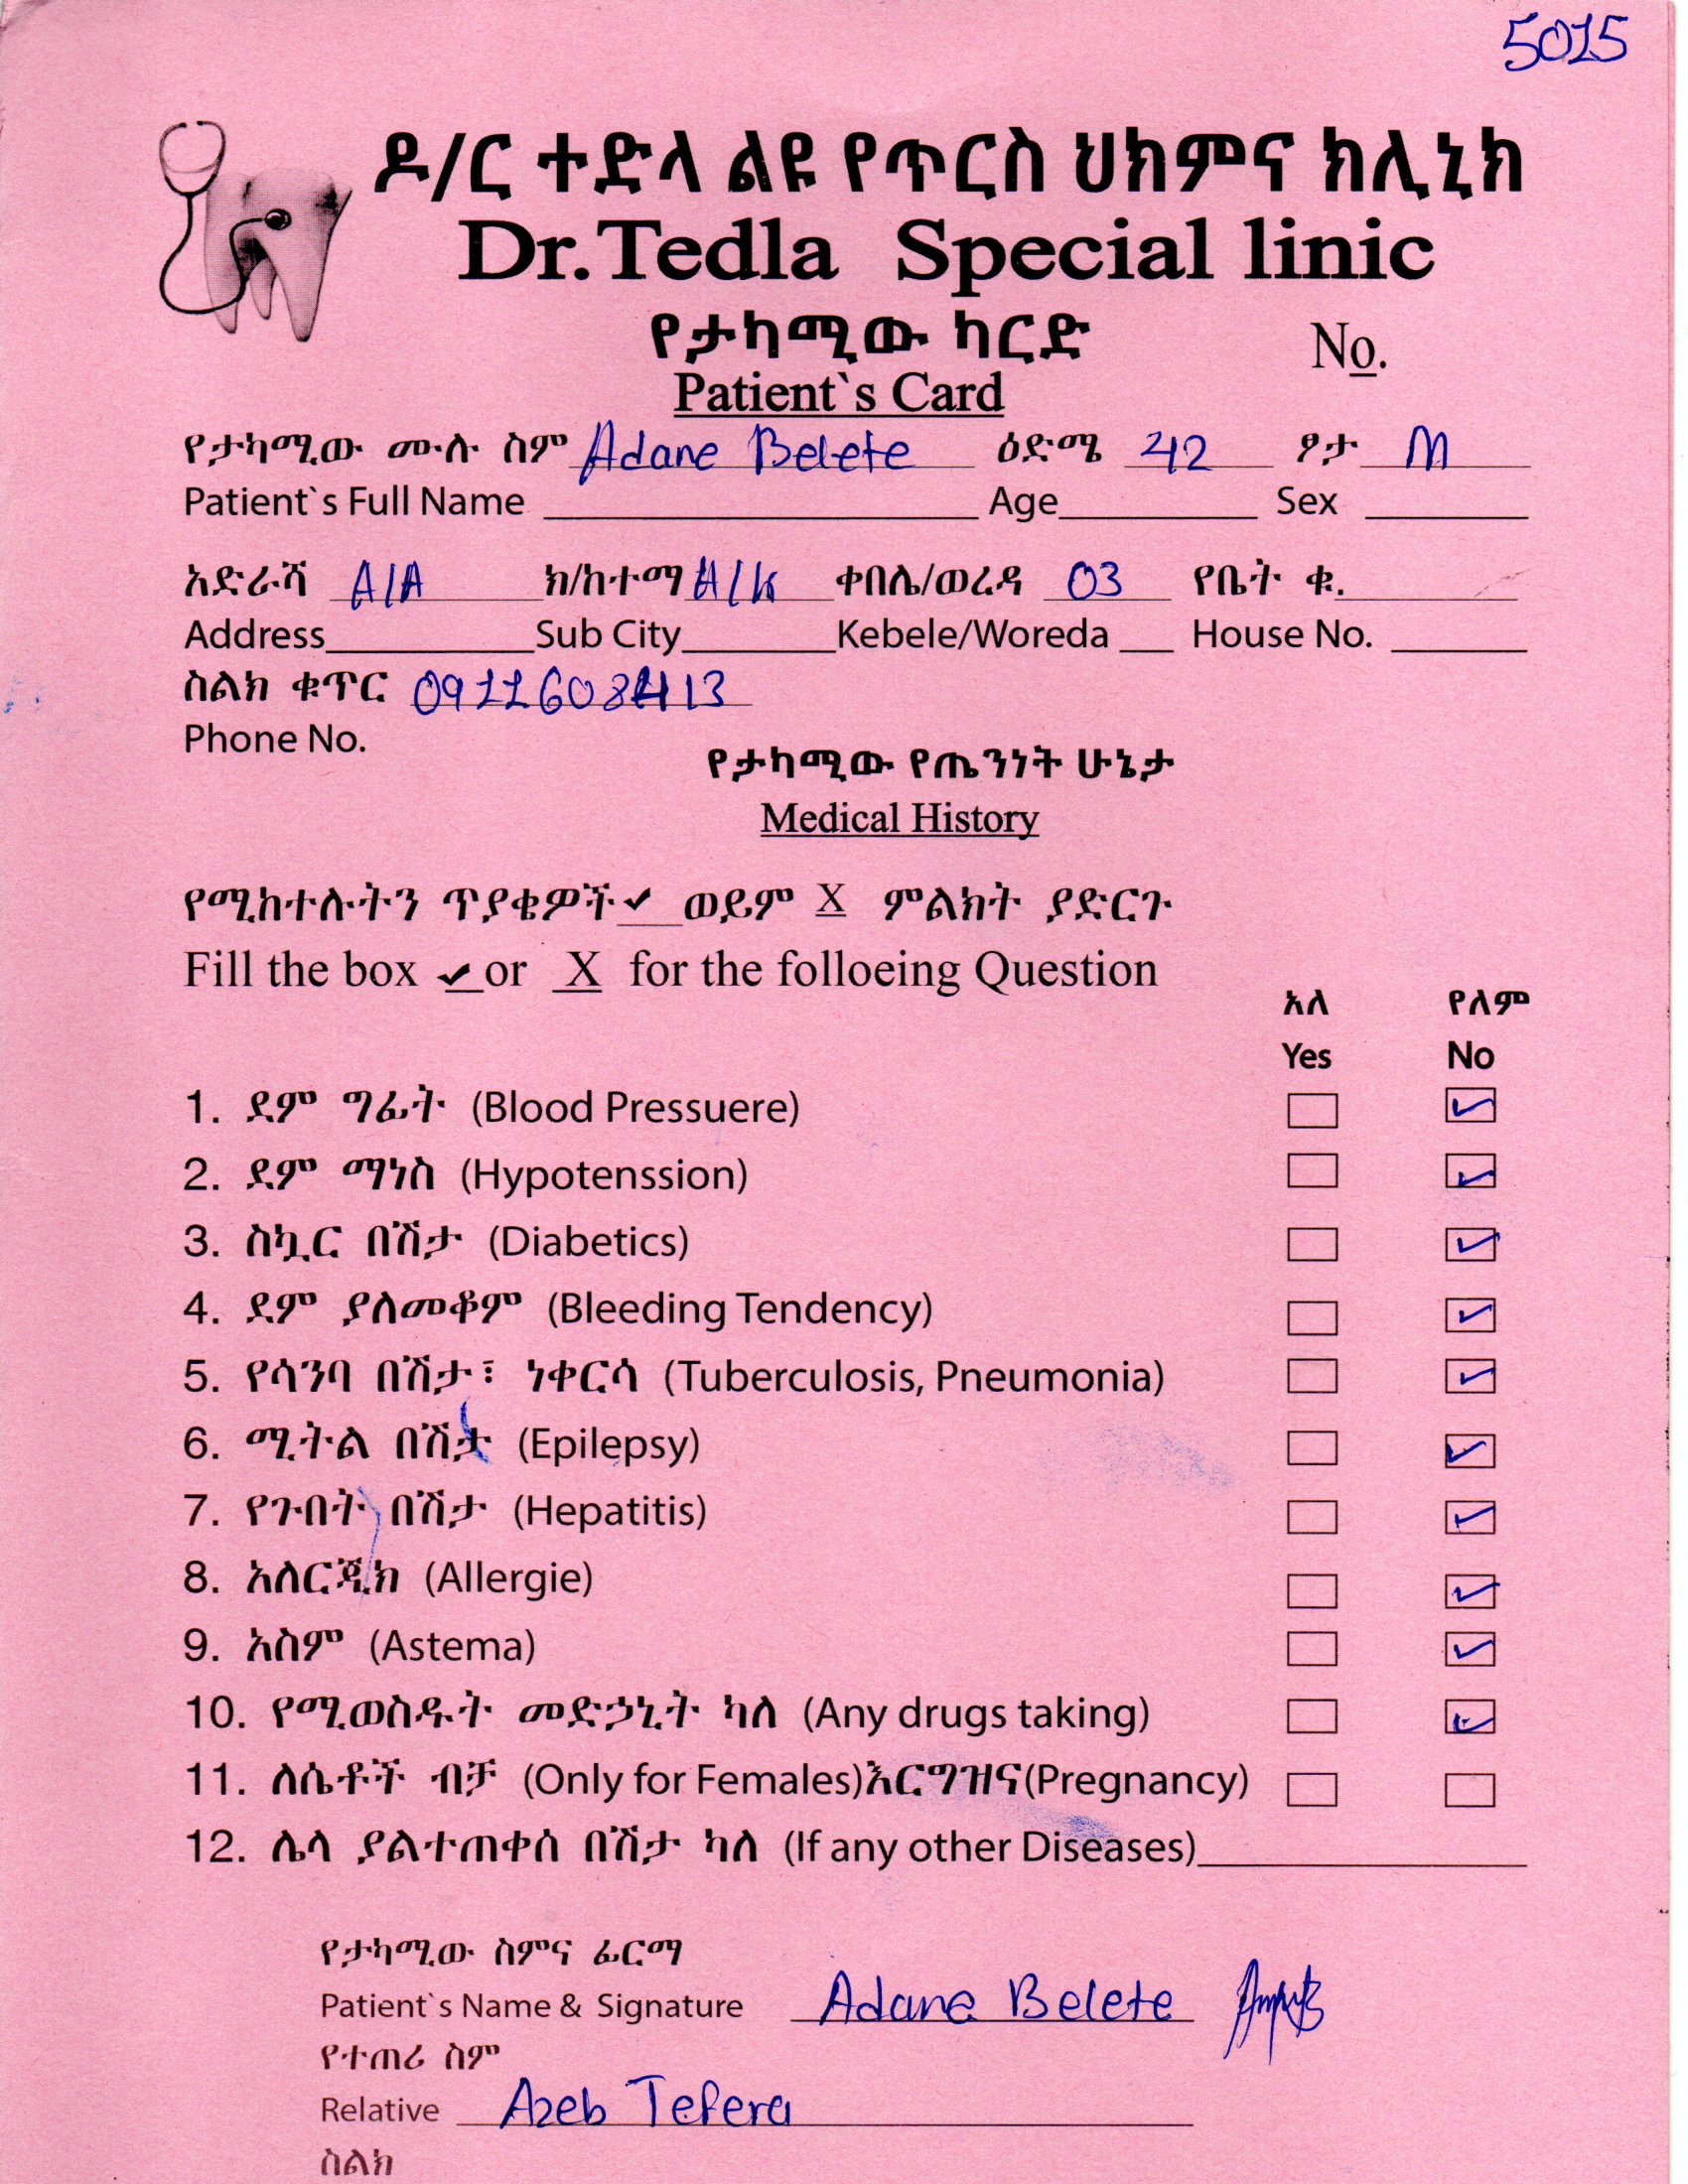 5015
ዶ/ር ተድላ ልዩ የጥርስ ህክምና ክሊኒክ
Dr.Tedla Special linic
የታካሚው ካርድ
No.
Patient`s Card
የታካሚው ሙሉ ስም Adane Belete ዕድሜ 42 ፆታ M
Patient`s Full Name Age Sex
አድራሻ A/A ክ/ከተማ A/K ቀበሌ/ወረዳ 03 የቤት ቁ.
Address Sub City Kebele/Woreda House No.
ስልክ ቁጥር
Phone No.
የታካሚው የጤንነት ሁኔታ
Medical History
የሚከተሉትን ጥያቄዎች ✔ ወይም X ምልክት ያድርጉ
Fill the box ✔ or X for the folloeing Question
አለ የለም
Yes No
1. ደም ግፊት (Blood Pressuere) ☐ ☑
2. ደም ማነስ (Hypotenssion) ☐ ☑
3. ስኳር በሽታ (Diabetics) ☐ ☑
4. ደም ያለመቆም (Bleeding Tendency) ☐ ☑
5. የሳንባ በሽታ፣ ነቀርሳ (Tuberculosis, Pneumonia) ☐ ☑
6. ሚትል በሽታ (Epilepsy) ☐ ☑
7. የጉበት በሽታ (Hepatitis) ☐ ☑
8. አለርጂክ (Allergie) ☐ ☑
9. አስም (Astema) ☐ ☑
10. የሚወስዱት መድኃኒት ካለ (Any drugs taking) ☐ ☑
11. ለሴቶች ብቻ (Only for Females)እርግዝና(Pregnancy) ☐ ☐
12. ሌላ ያልተጠቀሰ በሽታ ካለ (If any other Diseases)
የታካሚው ስምና ፊርማ
Patient`s Name & Signature Adane Belete
የተጠሪ ስም
Relative Azeb Tefera
ስልክ